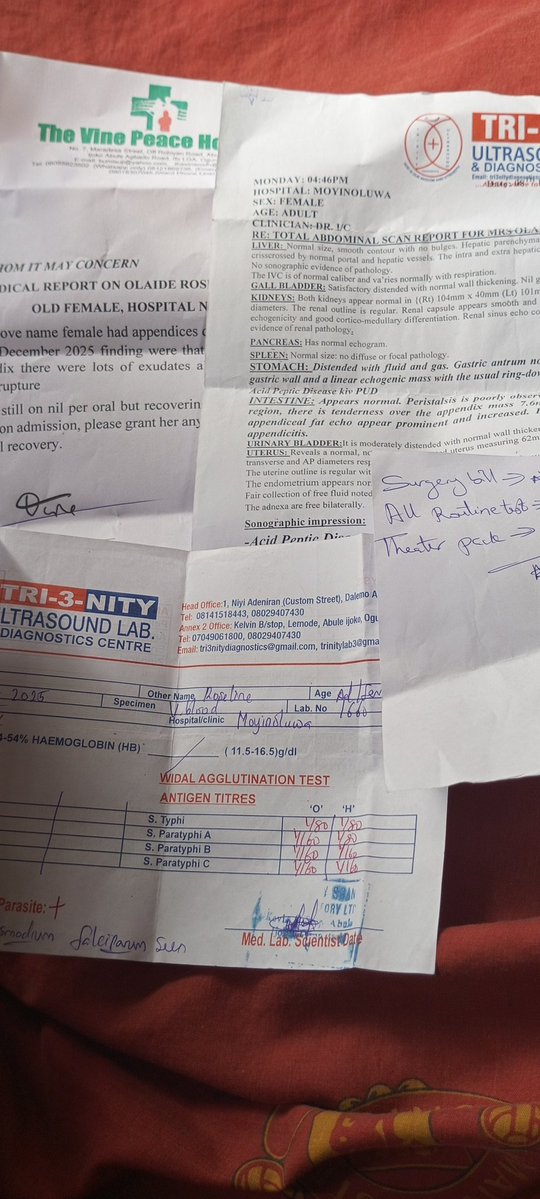 The Vine Peace Ho
HOM IT MAY CONCERN
DICAL REPORT ON OLAIDE ROS
OLD FEMALE, HOSPITAL N
ove name female had appendices
December 2025 finding were that
dix there were lots of exudates a
rupture
still on nil per oral but recoverin
on admission, please grant her any
l recovery.
TRI-
ULTRASO
& DIAGNOS
MONDAY: 04:46PM
HOSPITAL: MOYINOLUWA
SEX: FEMALE
AGE: ADULT
CLINICIAN: DR. UC
RE: TOTAL ABDOMINAL SCAN REPORT FOR MRS OLA
LIVER: Normal size, smooth contour with no bulges. Hepatic parenchyma
crisscrossed by normal portal and hepatic vessels. The intra and extra hepatic
No sonographic evidence of pathology.
The IVC is of normal caliber and va'ries normally with respiration.
GALL BLADDER: Satisfactory distended with normal wall thickening. Nil g
KIDNEYS: Both kidneys appear normal in {(Rt) 104mm x 40mm (Lt) 101m
diameters. The renal outline is regular. Renal capsule appears smooth and
echogenicity and good cortico-medullary differentiation. Renal sinus echo co
evidence of renal pathology.
PANCREAS: Has normal echogram.
SPLEEN: Normal size: no diffuse or focal pathology.
STOMACH: Distended with fluid and gas. Gastric antrum no
gastric wall and a linear echogenic mass with the usual ring-dow
Acid Peptic Disease kiv PUD
INTESTINE: Appears normal. Peristalsis is poorly observ
region, there is tenderness over the appendix mass 7.6m
appendiceal fat echo appear prominent and increased.
appendicitis.
URINARY BLADDER: It is moderately distended with normal wall thicke
UTERUS: Reveals a normal, uterus measuring 62m
transverse and AP diameters resp
The uterine outline is regular wit
The endometrium appears nor
Fair collection of free fluid noted
The adnexa are free bilaterally.
Sonographic impression:
-Acid Peptic Dise
Surgery bill →
All Routine test =
Theater pack →
TRI-3-NITY
LTRASOUND LAB.
DIAGNOSTICS CENTRE
Head Office:1, Niyi Adeniran (Custom Street), Dalemo A
Tel: 08141518443, 08029407430
Annex 2 Office: Kelvin B/stop, Lemode, Abule ijoko, Ogu
Tel: 07049061800, 08029407430
Email: tri3nitydiagnostics@gmail.com, trinitylab3@gma
2025 Other Name, Roseline Age Ad/fem
Specimen V. blood Lab. No 1660
Hospital/clinic Moyinoluwa
4-54% HAEMOGLOBIN (HB) (11.5-16.5)g/dl
WIDAL AGGLUTINATION TEST
ANTIGEN TITRES 'O' 'H'
S. Typhi 1/80 1/80
S. Paratyphi A 1/160 1/80
S. Paratyphi B 1/160 1/160
S. Paratyphi C 1/160 1/160
Parasite: +
smodium falciparum seen
Med. Lab. Scientist Date